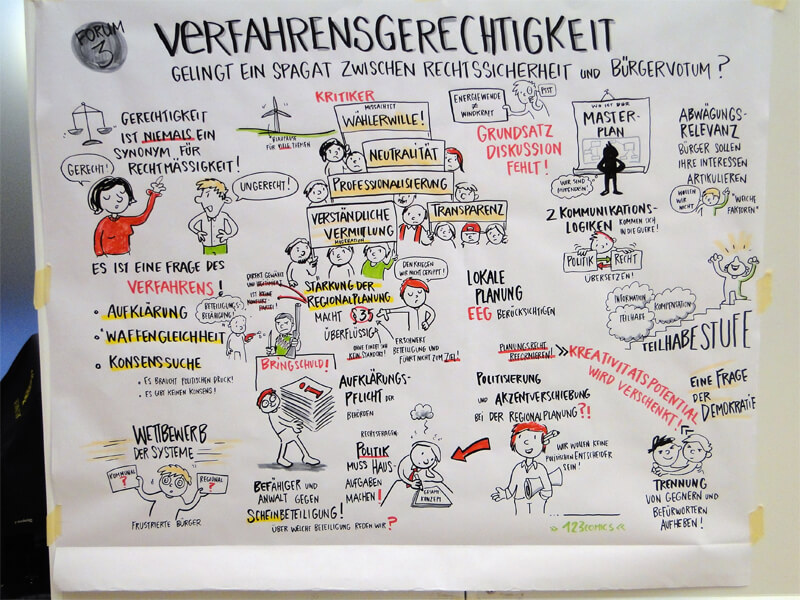 FORUM
3
VERFAHRENSGERECHTIGKEIT
GELINGT EIN SPAGAT ZWISCHEN RECHTSSICHERHEIT UND BÜRGERVOTUM?
GERECHTIGKEIT
IST NIEMALS EIN
SYNONYM FÜR
RECHTMÄSSIGKEIT!
GERECHT!
UNGERECHT!
ES IST EINE FRAGE DES
VERFAHRENS!
• AUFKLÄRUNG
• WAFFENGLEICHHEIT
• KONSENSSUCHE
• ES BRAUCHT POLITISCHEN DRUCK!
• ES GIBT KEINEN KONSENS!
FÜR VIELE THEMEN
KRITIKER
WÄHLERWILLE!
NEUTRALITÄT
PROFESSIONALISIERUNG
VERSTÄNDLICHE
VERMITTLUNG
MODERATION
TRANSPARENZ
ENERGIEWENDE
WINDKRAFT
PSST
GRUNDSATZ
DISKUSSION
FEHLT!
WO IST DER
MASTER-
PLAN
WIR SIND
ABWÄGUNGS-
RELEVANZ
BÜRGER SOLLEN
IHRE INTERESSEN
ARTIKULIEREN
WOLLEN
WIR NICHT
"WEICHE
FAKTOREN"
2 KOMMUNIKATIONS-
LOGIKEN
KOMMEN SICH
IN DIE QUERE!
POLITIK
RECHT
ÜBERSETZEN!
BETEILIGUNGS-
BEFÄHIGUNG!
DIREKT GEWÄHLT
IST KEINE
BRINGSCHULD!
STÄRKUNG DER
REGIONALPLANUNG
MACHT §35
ÜBERFLÜSSIG
DEN KRIEGEN
WIR NICHT GEKIPPT!
OHNE FINDET IHR
KEIN STANDORT!
ERSCHWERT
BETEILIGUNG UND
FÜHRT NICHT ZUM ZIEL!
LOKALE
PLANUNG
EEG BERÜCKSICHTIGEN
INFORMATION
KOMPENSATION
TEILHABE
TEILHABESTUFE
PLANUNGSRECHT
REFORMIEREN!
KREATIVITÄTSPOTENTIAL
WIRD VERSCHENKT!
EINE FRAGE
DER
DEMOKRATIE
AUFKLÄRUNGS-
PFLICHT DER
BEHÖRDEN
POLITISIERUNG
UND AKZENTVERSCHIEBUNG
BEI DER REGIONALPLANUNG?!
WETTBEWERB
DER SYSTEME
KOMMUNAL
?
REGIONAL
?
FRUSTRIERTE BÜRGER
BEFÄHIGER UND
ANWALT GEGEN
SCHEINBETEILIGUNG!
ÜBER WELCHE BETEILIGUNG REDEN WIR?
RECHTSFRAGEN
POLITIK
MUSS HAUS-
AUFGABEN
MACHEN!
GESAMT
KONZEPT
WIR WOLLEN KEINE
POLITISCHEN ENTSCHEIDER
SEIN!
TRENNUNG
VON GEGNERN UND
BEFÜRWORTERN
AUFHEBEN!
123comics